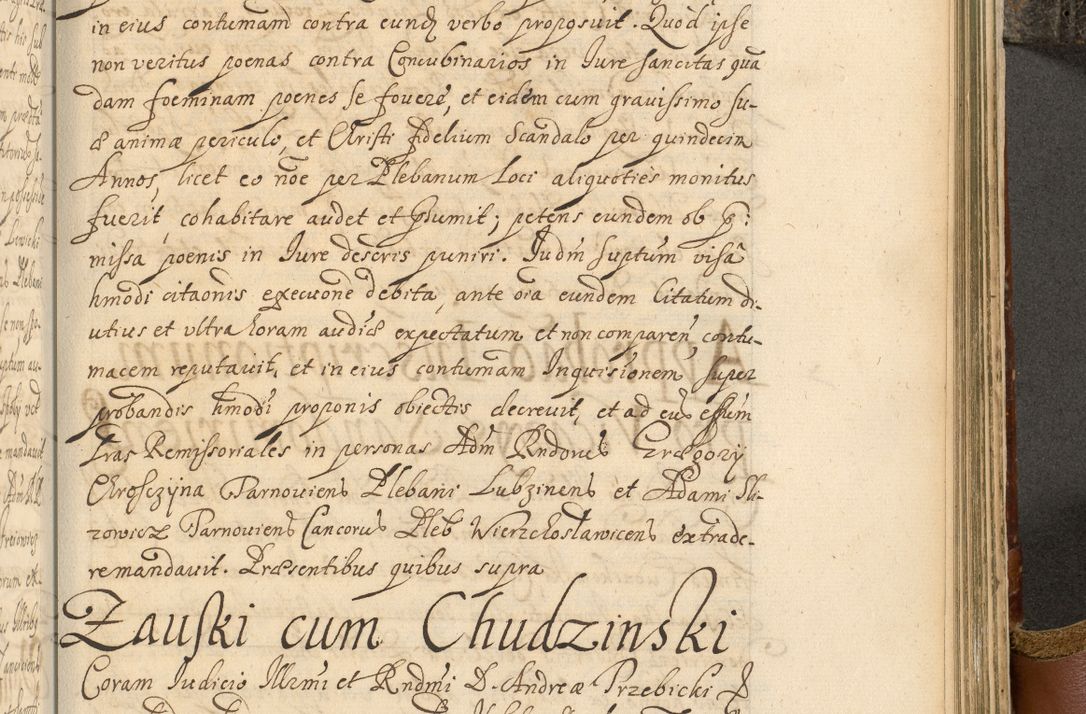 in eius contumam contra eund verbo proposuit. Quod ipse
non veritus poenas contra Concubinarios in Iure sancitas qua
dam foeminam poenes se fovere, et eidem cum gravissimo su-
æ animæ periculo, et Christi fidelium Scandalo per quindecim
Annos, licet eo noe per Plebanum Loci aliquoties monitus
fuerit, cohabitare audet et psumit; petens eundem ob p:
missa poenis in Iure descris puniri. Iudm suptum visâ
hmodi citaonis execuone debita, ante ora eundem Citatum di-
utius et ultra horam audiæ expectatum et non comparen, contu-
macem reputavit, et in eius contumam Inquisionem super
probandis hmodi proponis obiectis decrevit, et ad eus effum
Lras Remissoriales in personas Adm Rndorus Gregory
Chrosczyna Tarnoviens Plebani Lubzinens et Adami Sli-
zowicz Tarnoviens Cancorus Pleb Wierzchosławicens extrade-
re mandavit. Præsentibus quibus supra
Zauski cum Chudzinski
Coram Iudicio Illrmi et Rndmi D. Andreæ Przebicki